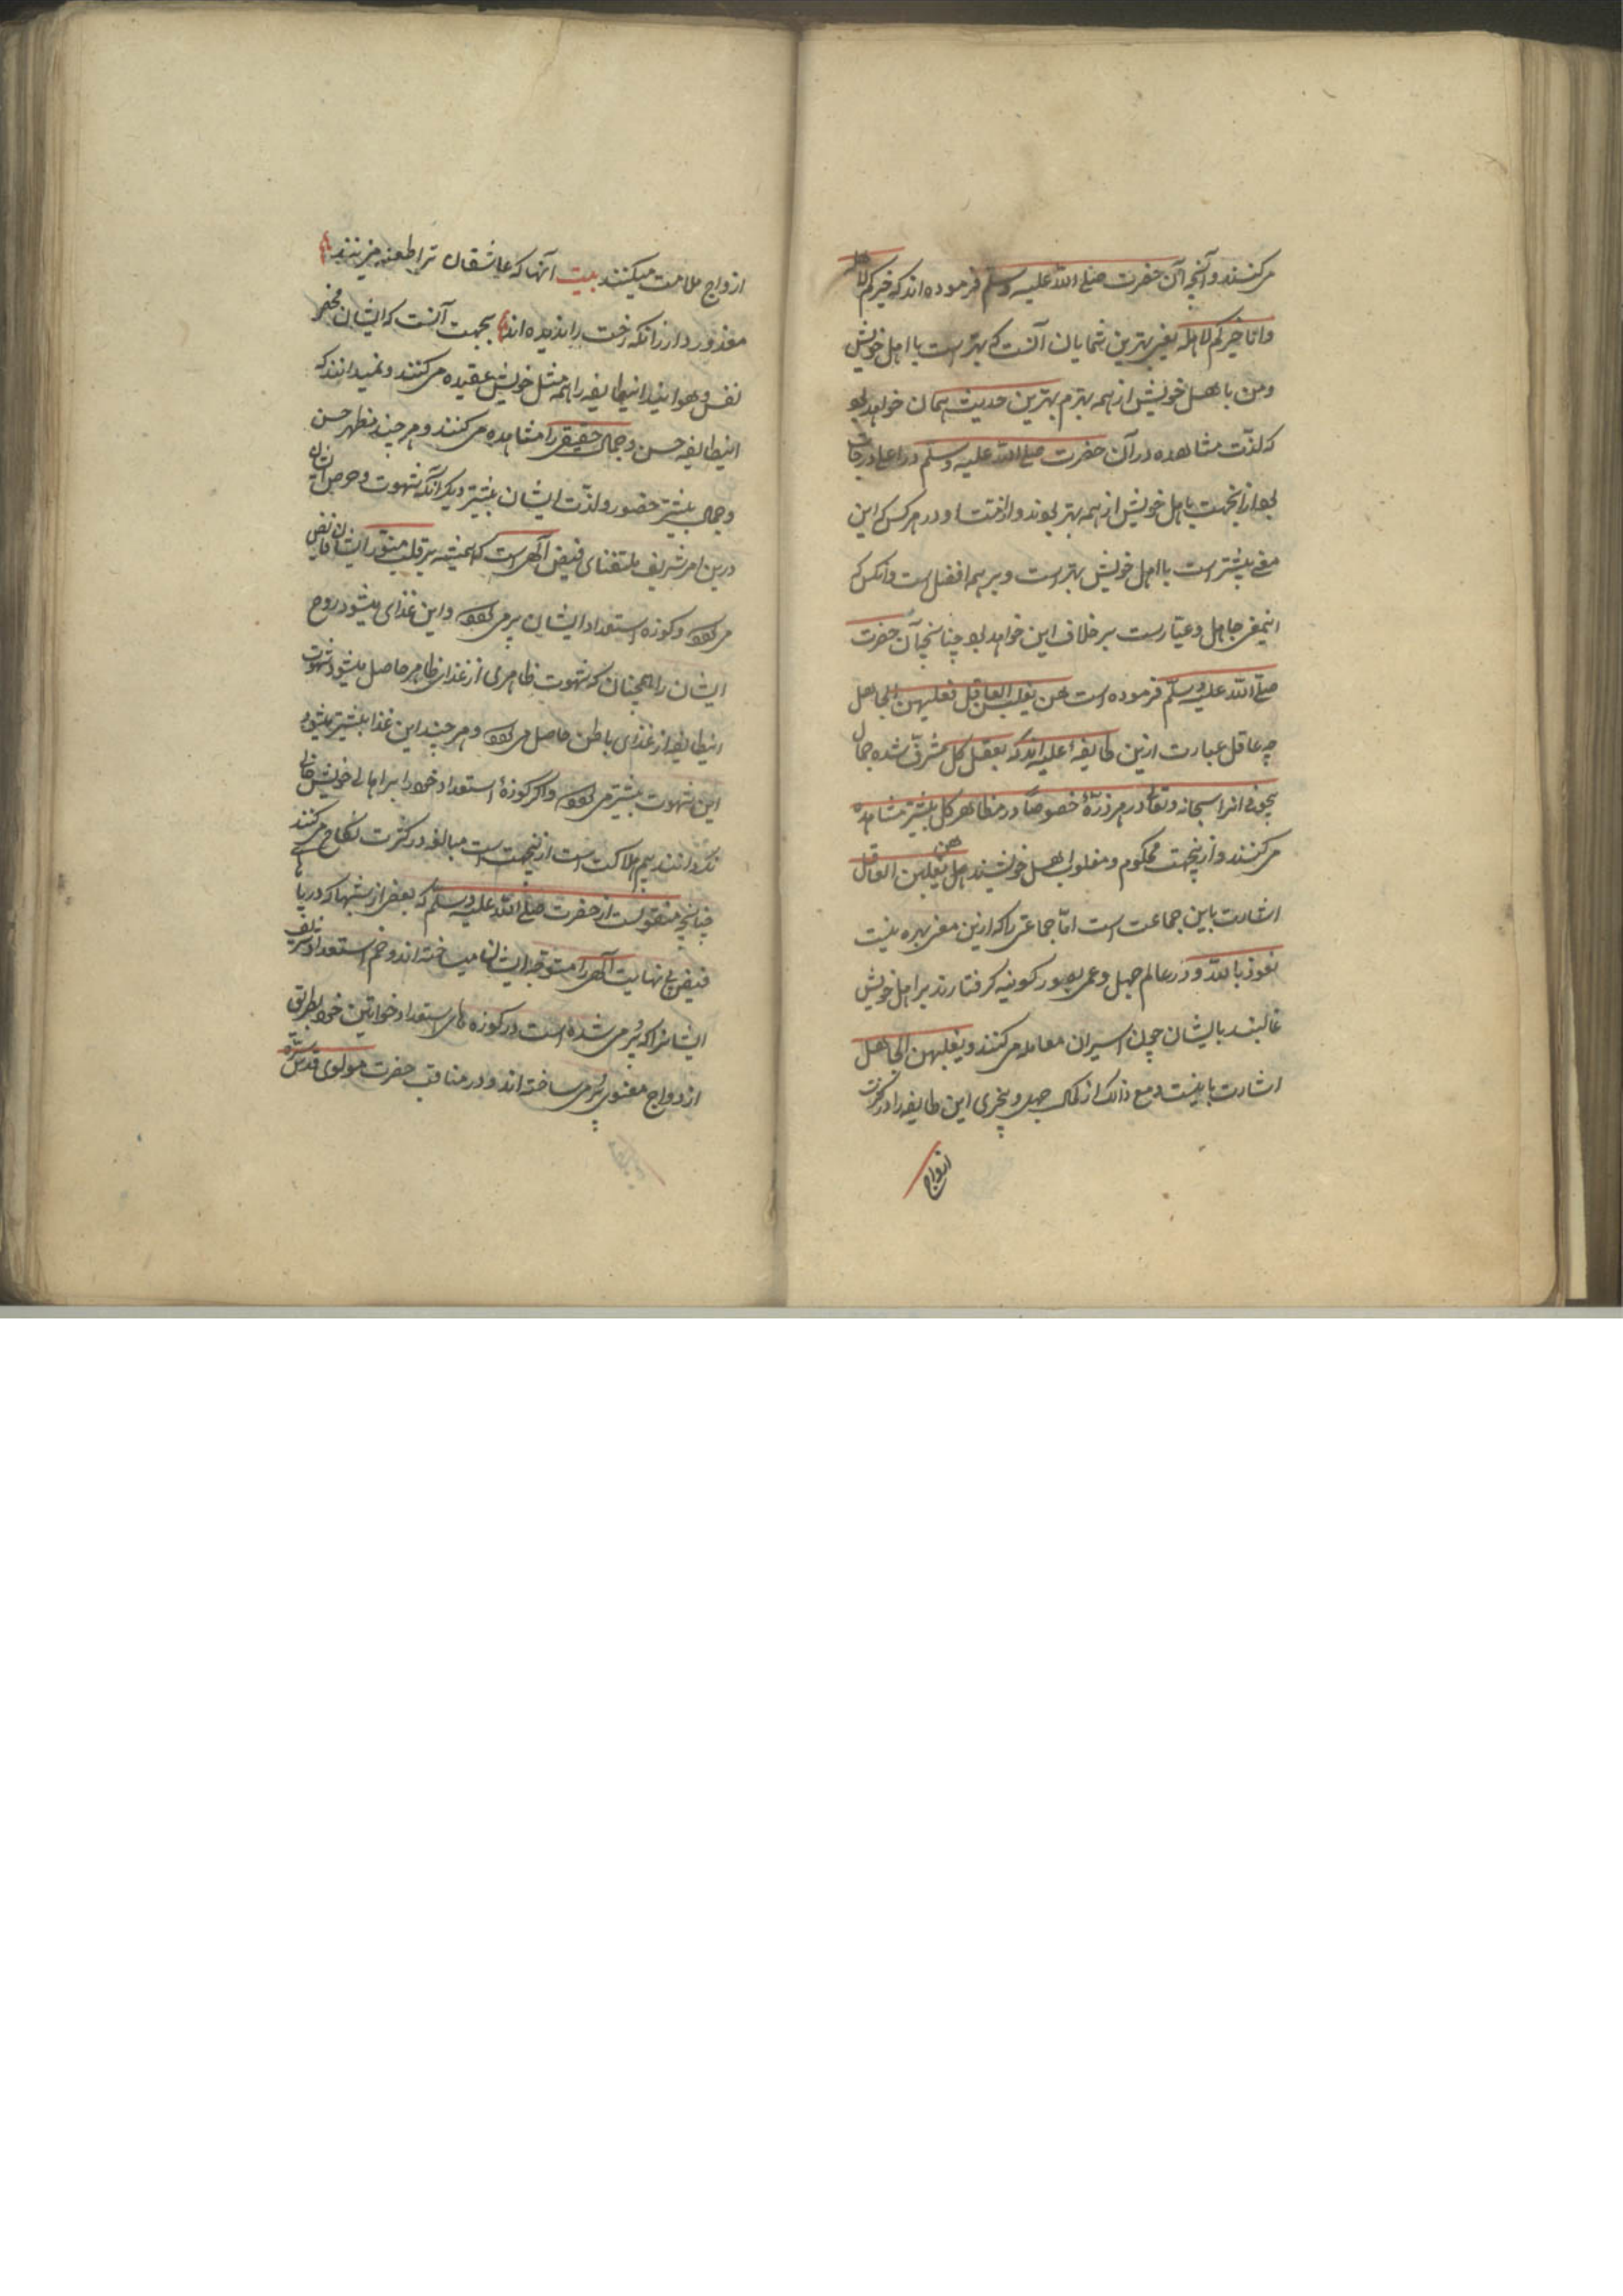 می‌کنند و آنچه آن حضرت صلی الله علیه وسلم فرموده اند که خیرکم لاهله
وانا خیرکم لاهله یعنی بهترین شمایان آنست که بهتر است با اهل خویش
ومن با اهل خویش از همه بهترم بهترین حدیث همان خواهد بود
که لذت مشاهده در آن حضرت صلی الله علیه وسلم در اعلی درجات
بود ازانجهت با اهل خویش از همه بهتر بودند و در هر کس که این
معنی بیشتر است با اهل خویش بهتر است و بر همه افضل است وانکس که
ازینمعنی جاهل و عیار است بر خلاف این خواهد بود چنانچه آن حضرت
صلی الله علیه وسلم فرموده است هن یغلبن العاقل و یغلبهن الجاهل
چه عاقل عبارت ازین طایفه علیه اند که بعقل کل مشرف شده جمال
بیچونی را سبحانه وتعالی در هر ذره خصوصاً در مظاهر کل بیشتر مشاهده
می‌کنند و ازینجهت محکوم و مغلوب اهل خویشند هن یغلبن العاقل
اشارت باین جماعت است اما جماعتی را که ازین معنی بهره نیست
نعوذ بالله و در عالم جهل و عمی بصور کونیه گرفتارند بر اهل خویش
غالبند بایشان چون اسیران معامله می‌کنند و یغلبهن الجاهل
اشارت باینست و مع ذالک از کمال جهل و بیخبری این طایفه را در کثرت
ازواج
ازواج ملامت میکنند بیت آنها که عاشقان ترا طعنه میزنند
معذور دار زانکه رخت را ندیده اند بجهت آنست که ایشان مخمر
نفس و هوایند اینطایفه را همه مثل خویش عقیده می‌کنند و نمیدانند که
اینطایفه حسن و جمال حقیقی را مشاهده می‌کنند و هر چند مظهر حسن
و جمال بیشتر حضور و لذت ایشان بیشتر دیگر آنکه شهوت و حرص ایشان
درین امر شریف باقتضای فیض الهی است که همیشه بر قلب منور ایشان فایض
می‌بود و کوزه استعداد ایشان پر می‌بود و این غذای میشود روح
ایشان را همچنان که شهوت ظاهری از غذای ظاهر حاصل میشود شهوت
اینطایفه از غذای باطن حاصل می‌بود و هر چند این غذا بیشتر میشود
این شهوت بیشتر می‌بود و اگر کوزهٔ استعداد خود را بر اهالی خویش خالی
نگردانند بیم هلاکت است ازینجهت است مبالغه در کثرت نکاح می‌کنند
چنانچه منقولست از حضرت صلی الله علیه وسلم که بعضی از شبها که دریا
فیض بی نهایت الهی را متوجه ایشان میساخته اند و خم استعداد شریف
ایشانرا که پر می شده است در کوزه های استعداد خواتین خود بطریق
ازدواج معنوی پر می ساخته اند و در مناقب حضرت مولوی قدس سره